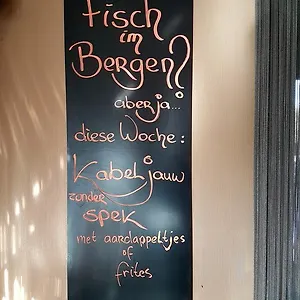 Fisch
im
Bergen?
aber ja...
diese Woche:
Kabeljauw
zonder
spek
met aardappeltjes
of
frites